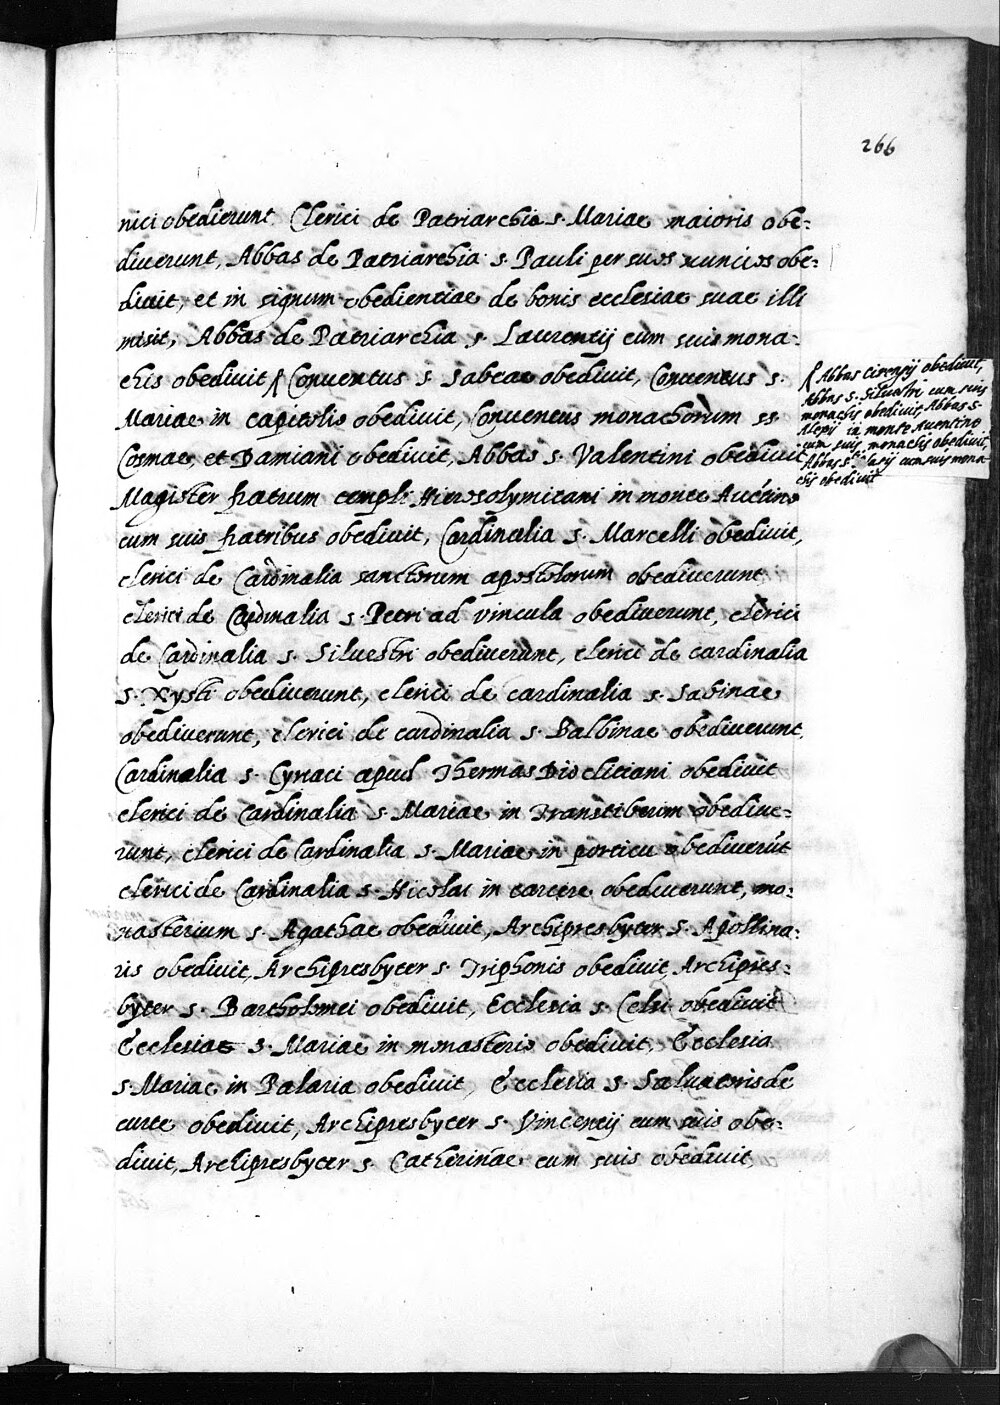 266
nici obedierunt Clerici de Patriarchia s. Mariae maioris obe-
diuerunt, Abbas de Patriarchia s. Pauli per suos nuncios obe-
diuit, et in signum obedientiae de bonis ecclesiae suae illi
misit, Abbas de Patriarchia s. Laurentij cum suis mona-
chis obediuit Conuentus s. Sabeae obediuit, Conuentus s.
Mariae in capitolio obediuit, Conuentus monachorum ss
Cosmae, et Damiani obediuit, Abbas s. Valentini obediuit
Magister fratrum templi Hierosolymitani in monte Auētino
cum suis fratribus obediuit, Cardinalia s. Marcelli obediuit,
clerici de Cardinalia sanctorum apostolorum obediuerunt
clerici de Cardinalia s. Petri ad vincula obediuerunt, clerici
de Cardinalia s. Siluestri obediuerunt, clerici de cardinalia
s. Xysti obediuerunt, clerici de cardinalia s. Sabinae
obediuerunt, clerici de cardinalia s. Balbinae obediuerunt,
Cardinalia s. Cyriaci apud Thermas Diocliciani obediuit
clerici de Cardinalia s. Mariae in Transtiberim obediue-
runt, clerici de Cardinalia s. Mariae in porticu obediuerūt
clerici de Cardinalia s. Nicolai in carcere obediuerunt, mo-
nasterium s. Agathae obediuit, Archipresbyter s. Apollina-
ris obediuit, Archipresbyter s. Triphonis obediuit, Archipres-
byter s. Bartholomei obediuit, Ecclesia s. Celsi obediuit
Ecclesiae s. Mariae in monasterio obediuit, Ecclesia
s. Mariae in Palaria obediuit, Ecclesia s. Saluatoris de
curte obediuit, Archipresbyter s. Vincentij cum suis obe-
diuit, Archipresbyter s. Catherinae cum suis obediuit,
Abbas obediuit,
Abbas s. Siluestri cum suis
monachis obediuit Abbas s.
Alexij in monte Auentino
cum suis monachis obediuit
Abbas s. cum suis mona-
chis obediuit